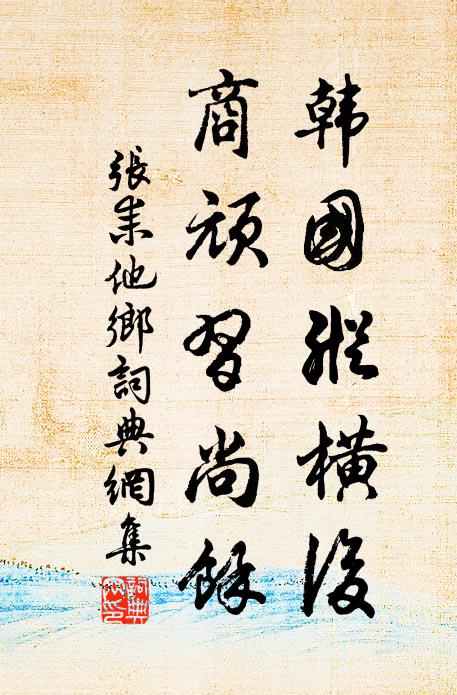 韓國縱橫後
商頑習尚餘
張耒他鄉詞典網集